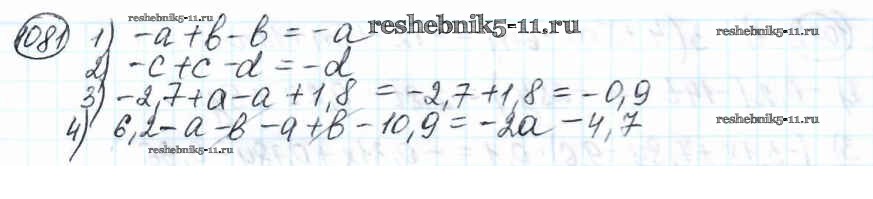 reshebnik5-11.ru
1081 1) -a+b-b = -a reshebnik5-11.ru
2) -c+c-d = -d
3) -2,7+a-a+1,8 = -2,7+1,8 = -0,9
4) 6,2-a-b-a+b-10,9 = -2a-4,7 reshebnik5-11.ru
reshebnik5-11.ru